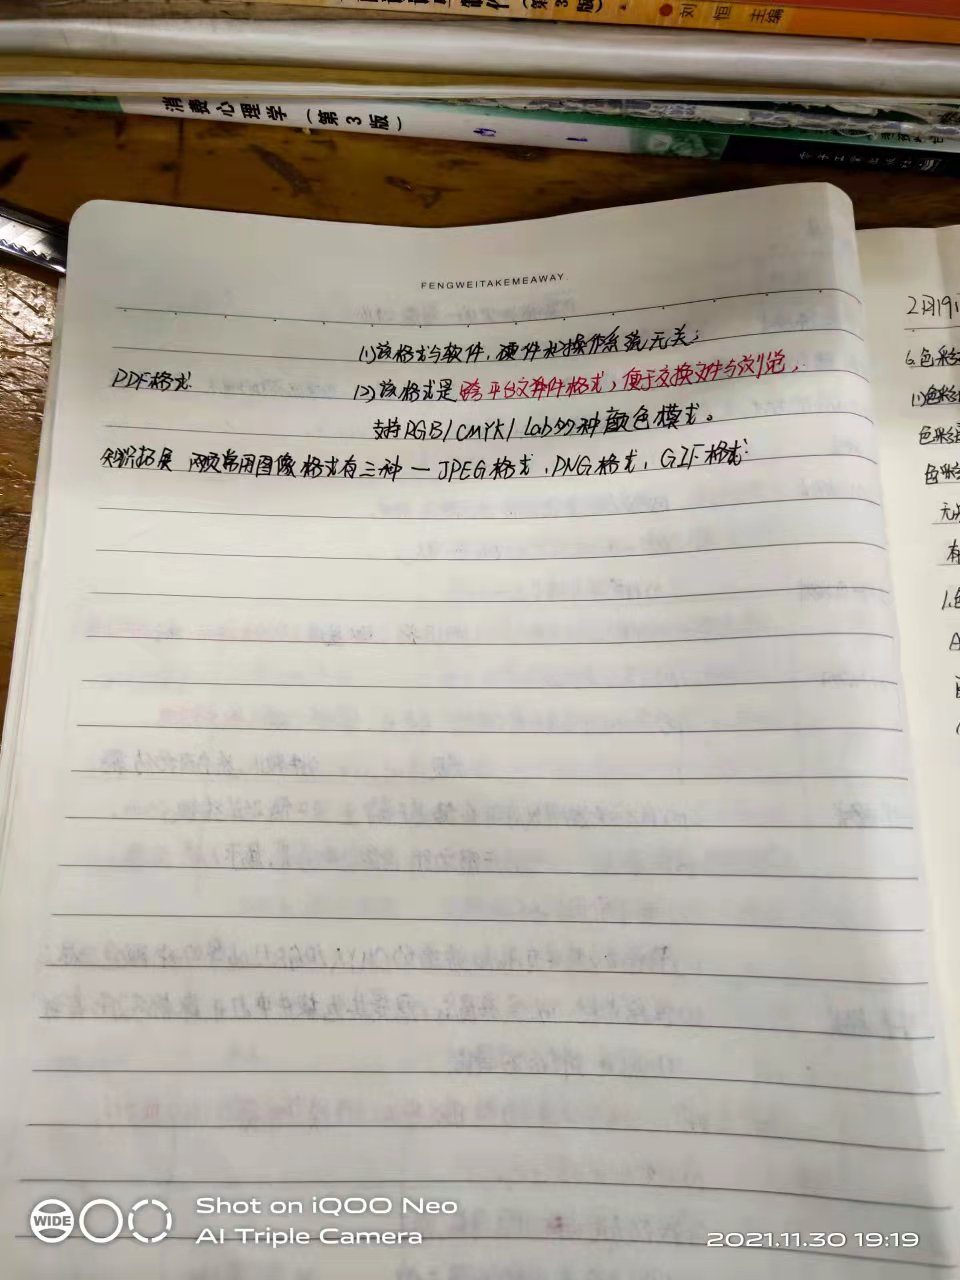 (第3版)
刘恒 主编
消费心理学（第3版）
FENGWEITAKEMEAWAY
(1)该格式与软件、硬件和操作系统无关;
PDF格式.
(2)该格式是跨平台文件格式,便于交换文件与浏览,
支持RGB/CMYK/Lab多种颜色模式。
知识拓展 网页常用图像格式有三种一JPEG格式、PNG格式、GIF格式.
2月19
6.色彩
(1)色彩
色彩
色彩
无
Shot on iQOO Neo
WIDE
AI Triple Camera
2021.11.30 19:19